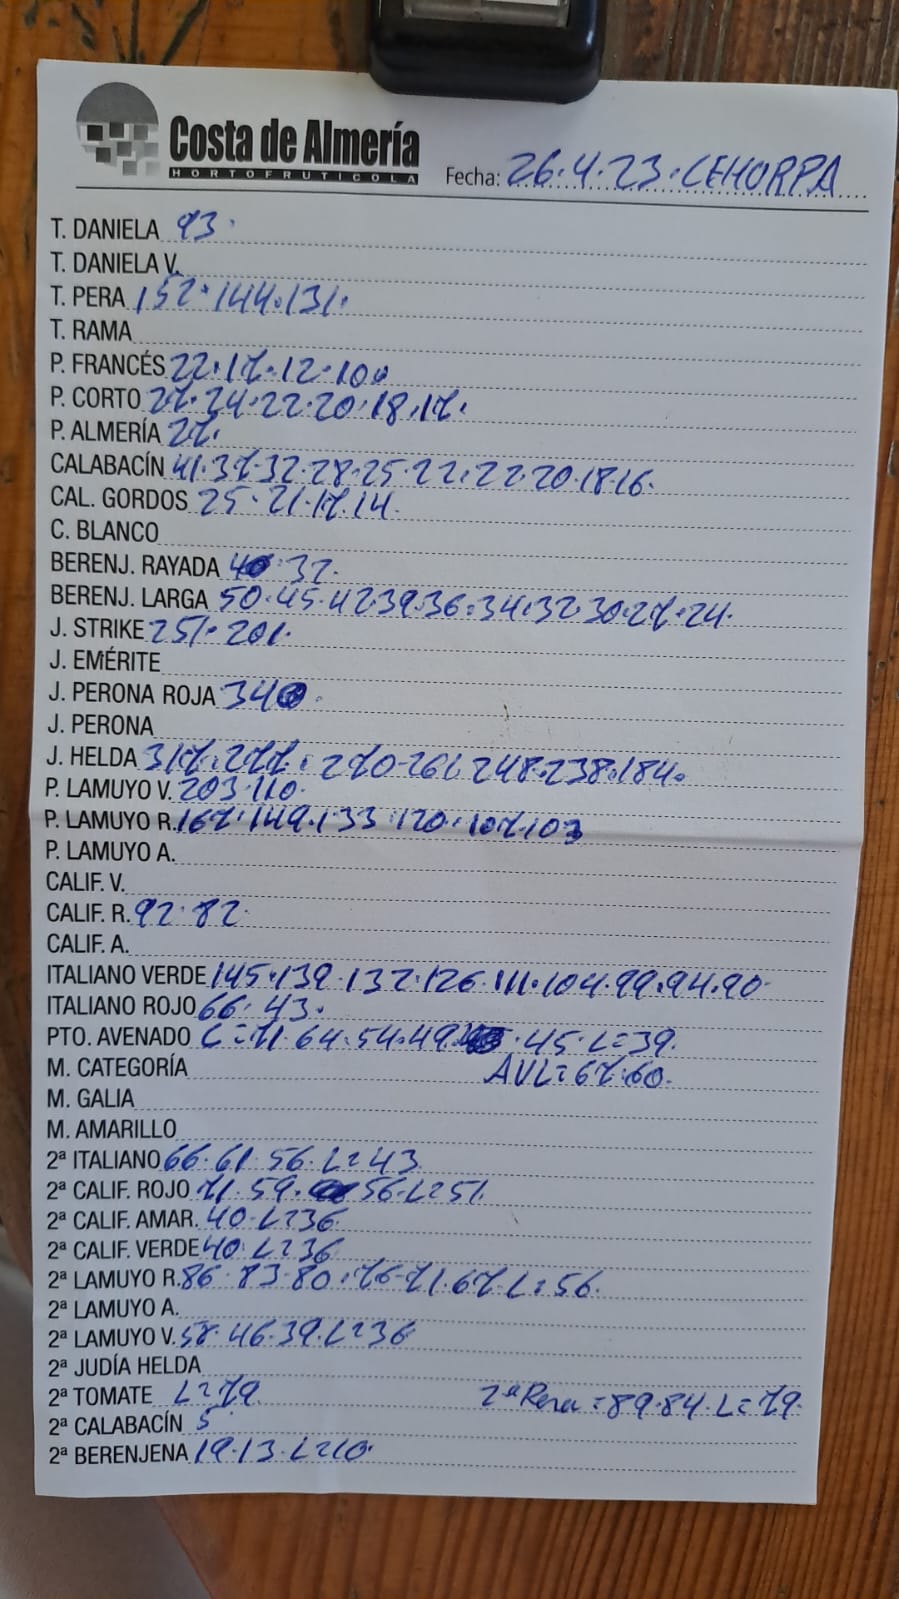 Costa de Almería
HORTOFRUTICOLA
Fecha: 26.4.23.CEHORPA
T. DANIELA 93.
T. DANIELA V.
T. PERA 152.144.131.
T. RAMA
P. FRANCÉS 22.17.12.10
P. CORTO 27.24.22.20.18.17.
P. ALMERÍA 27.
CALABACÍN 41.37.32.28.25.22.22.20.18.16.
CAL. GORDOS 25.21.17.14.
C. BLANCO
BERENJ. RAYADA 40.32.
BERENJ. LARGA 50.45.42.39.36.34.32.30.27.24.
J. STRIKE 251.201.
J. EMÉRITE
J. PERONA ROJA 340.
J. PERONA
J. HELDA 317.277.270.261.248.238.184.
P. LAMUYO V. 203.110.
P. LAMUYO R. 167.149.133.120.107.103
P. LAMUYO A.
CALIF. V.
CALIF. R. 92.82.
CALIF. A.
ITALIANO VERDE 145.139.132.126.111.104.99.94.90.
ITALIANO ROJO 66.43.
PTO. AVENADO L=71.64.54.49.45.L=39.
M. CATEGORÍA AVL=67.60.
M. GALIA
M. AMARILLO
2ª ITALIANO 66.61.56.L=43
2ª CALIF. ROJO 71.59.56.L=51.
2ª CALIF. AMAR. 40.L=36.
2ª CALIF. VERDE 40.L=36
2ª LAMUYO R. 86.83.80.76.71.67.L=56.
2ª LAMUYO A.
2ª LAMUYO V. 58.46.39.L=36
2ª JUDÍA HELDA
2ª TOMATE L=79. 2ªPera=89.84.L=79.
2ª CALABACÍN 5
2ª BERENJENA 19.13.L=10.